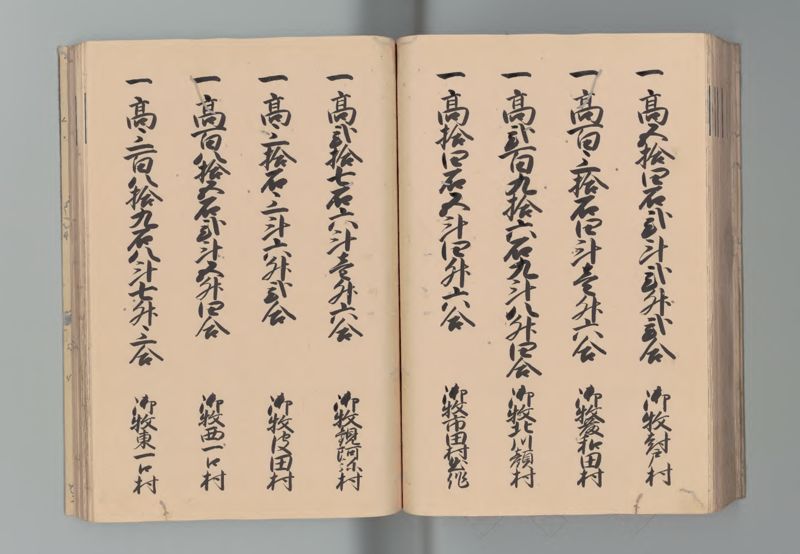 一 高五拾四石弐斗弐升弐合 御牧封戸村
一 高百三拾石四斗壱升六合 御牧産拈田村
一 高弐百九拾六石九斗八升四合 御牧北川顔村
一 高拾四石五斗四升六合 御牧市田村出作
一 高弐拾七石六斗壱升六合 御牧観阿弥村
一 高三拾石三斗六升弐合 御牧池田村
一 高百八拾五石弐斗五升四合 御牧西一口村
一 高三百八拾九石八斗七升三合 御牧東一口村